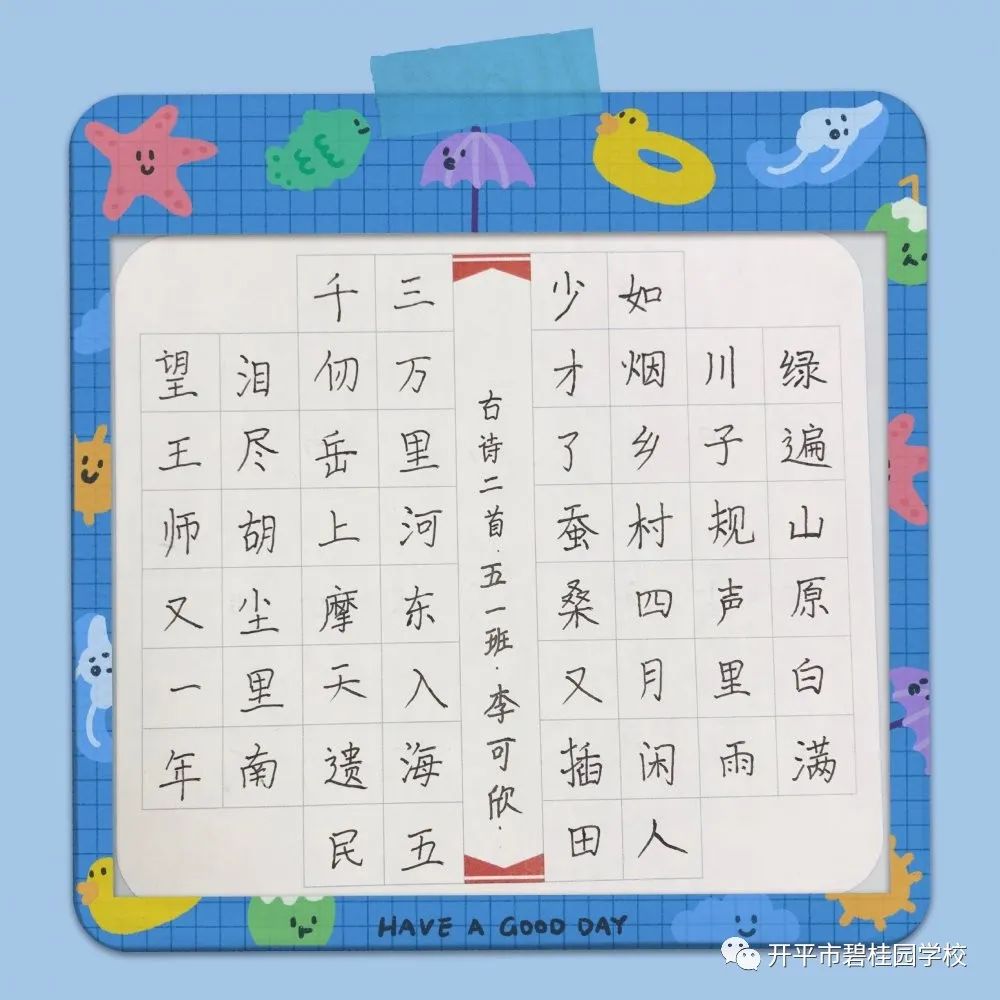 绿遍山原白满
川子规声里雨
如烟乡村四月闲人
少才了蚕桑又插田
古诗二首·五一班·李可欣·
三万里河东入海五
千仞岳上摩天遗民
泪尽胡尘里南
望王师又一年
HAVE A GOOD DAY
开平市碧桂园学校